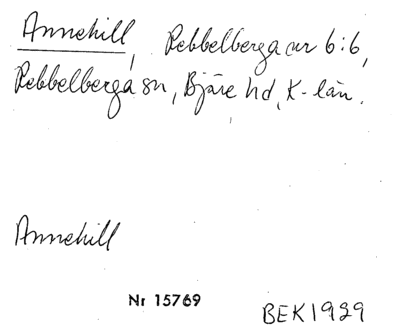 Annehill, Rebbelberga nr 6:6,
Rebbelberga sn, Bjäre hd, K-län.
Annehill
Nr 15769
BEK 1929